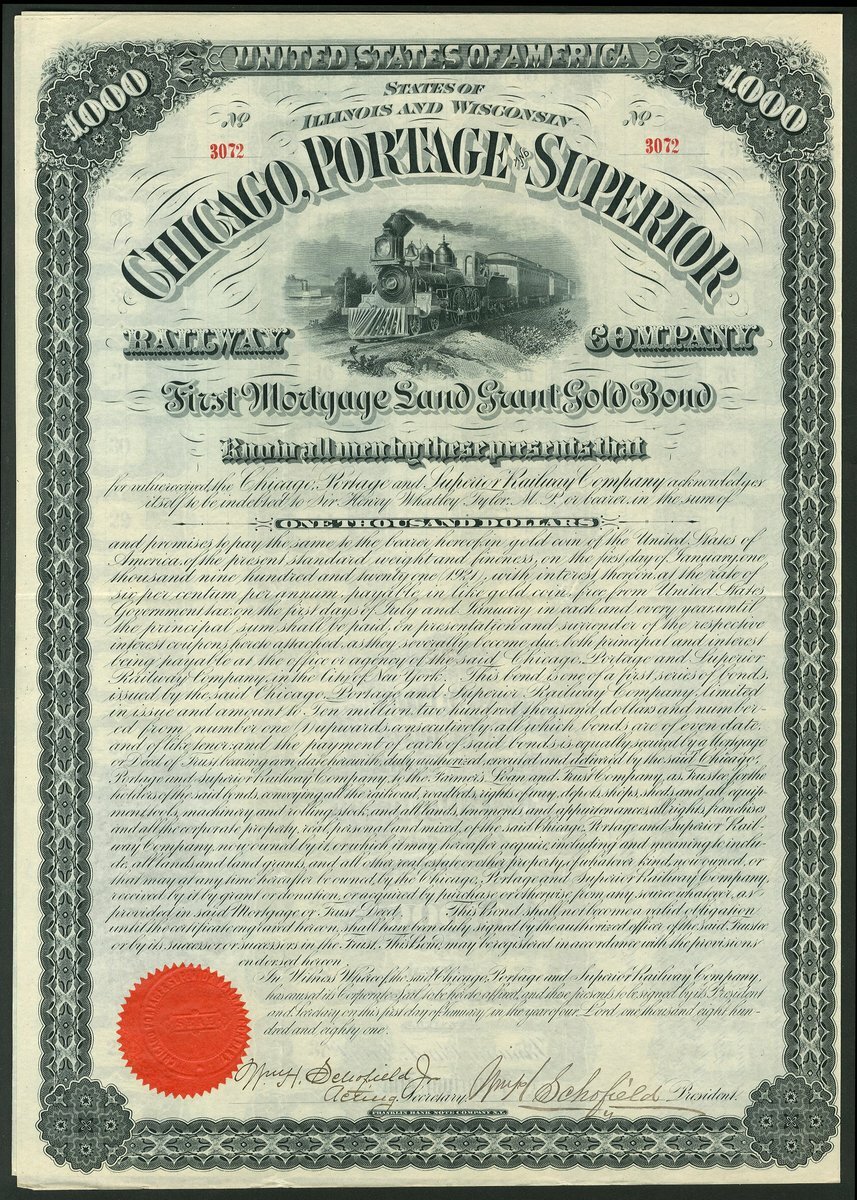 UNITED STATES OF AMERICA
1000
1000
STATES OF
ILLINOIS AND WISCONSIN
No
3072
No
3072
CHICAGO, PORTAGE AND SUPERIOR
RAILWAY COMPANY
First Mortgage Land Grant Gold Bond
Know all men by these presents that
for value received, the Chicago, Portage and Superior Railway Company acknowledges
itself to be indebted to Sir Henry Whatley Tyler, M. P. or bearer, in the sum of
ONE THOUSAND DOLLARS
and promises to pay the same to the bearer hereof, in gold coin of the United States of
America, of the present standard weight and fineness, on the first day of January, one
thousand nine hundred and twenty one (1921), with interest thereon, at the rate of
six per centum per annum, payable in like gold coin, free from United States
Government tax, on the first days of July and January in each and every year, until
the principal sum shall be paid, on presentation and surrender of the respective
interest coupons hereto attached, as they severally become due, both principal and interest
being payable at the office or agency of the said Chicago, Portage and Superior
Railway Company, in the City of New York. This bond is one of a first series of bonds,
issued by the said Chicago, Portage and Superior Railway Company, limited
in issue and amount to Ten million two hundred thousand dollars and number-
ed from number one (1) upwards consecutively, all which bonds are of even date,
and of like tenor, and the payment of each of said bonds is equally secured by a Mortgage
or Deed of Trust bearing even date herewith, duly authorized, executed and delivered by the said Chicago,
Portage and Superior Railway Company, to the Farmer's Loan and Trust Company, as Trustee for the
holders of the said bonds, conveying all the railroad, roadbeds, rights of way, depots, shops, sheds and all equip-
ment, tools, machinery and rolling stock, and all lands, tenements and appurtenances, all rights, franchises
and all the corporate property, real, personal and mixed, of the said Chicago, Portage and Superior Rail-
way Company, now owned by it, or which it may hereafter acquire, including and meaning to inclu-
de, all lands and land grants, and all other real estate or other property of whatever kind, now owned, or
that may at any time hereafter be owned, by the Chicago, Portage and Superior Railway Company,
received by it by grant or donation, or acquired by purchase or otherwise, from any source whatever, as
provided in said Mortgage or Trust Deed. This Bond shall not become a valid obligation
until the certificate engraved hereon, shall have been duly signed by the authorized officer of the said Trustee
or by its successor or successors in the Trust. This Bond may be registered in accordance with the provisions
endorsed hereon.
In Witness Whereof, the said Chicago, Portage and Superior Railway Company,
has caused its Corporate Seal, to be hereto affixed, and these presents to be signed by its President
and Secretary on this first day of January, in the year of our Lord, one thousand eight hun-
dred and eighty one.
Wm H. Schofield Jr
Acting Secretary.
Wm H Schofield President.
FRANKLIN BANK NOTE COMPANY N.Y.